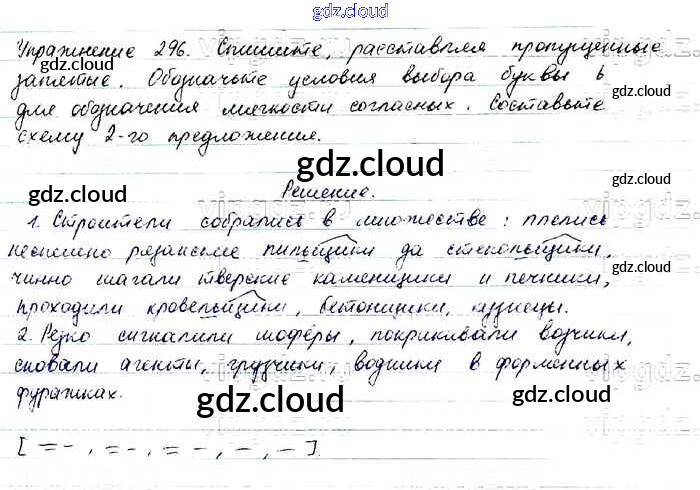 gdz.cloud
Упражнение 296. Спишите, расставляя пропущенные
запятые. Обозначьте условия выбора буквы ь
для обозначения мягкости согласных. Составьте
схему 2-го предложения.
Решение.
1. Строители собрались в множестве: плелись
неспешно рязанские пильщики да стекольщики,
чинно шагали тверские каменщики и печники,
проходили кровельщики, бетонщики, кузнецы.
2. Резко сигналили шофёры, покрикивали возчики,
сновали агенты, грузчики, водники в форменных
фуражках.
[ = – , = – , = – , – , – ].
gdz.cloud
gdz.cloud
gdz.cloud
gdz.cloud
gdz.cloud
gdz.cloud
gdz.cloud
gdz.cloud
gdz.cloud
gdz.cloud